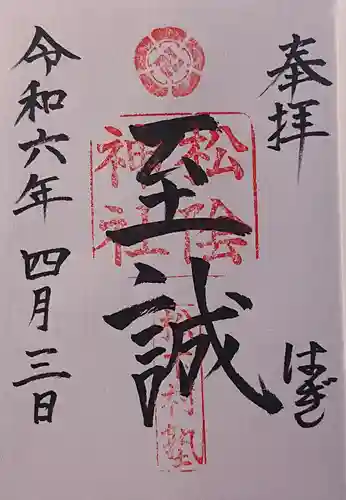 奉拝
はぎ
至誠
松陰
神社
松下村塾
令和六年 四月 三日